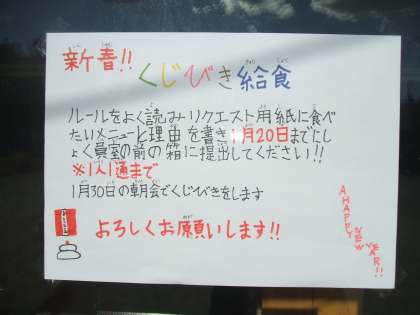 新春!!
くじびき給食
ルールをよく読みリクエスト用紙に食べ
たいメニューと理由を書き1月20日までにし
ょく員室の前の箱に提出してください!!
※1人1通まで
1月30日の朝会でくじびきをします
よろしくお願いします!!
A HAPPY NEW YEAR!!